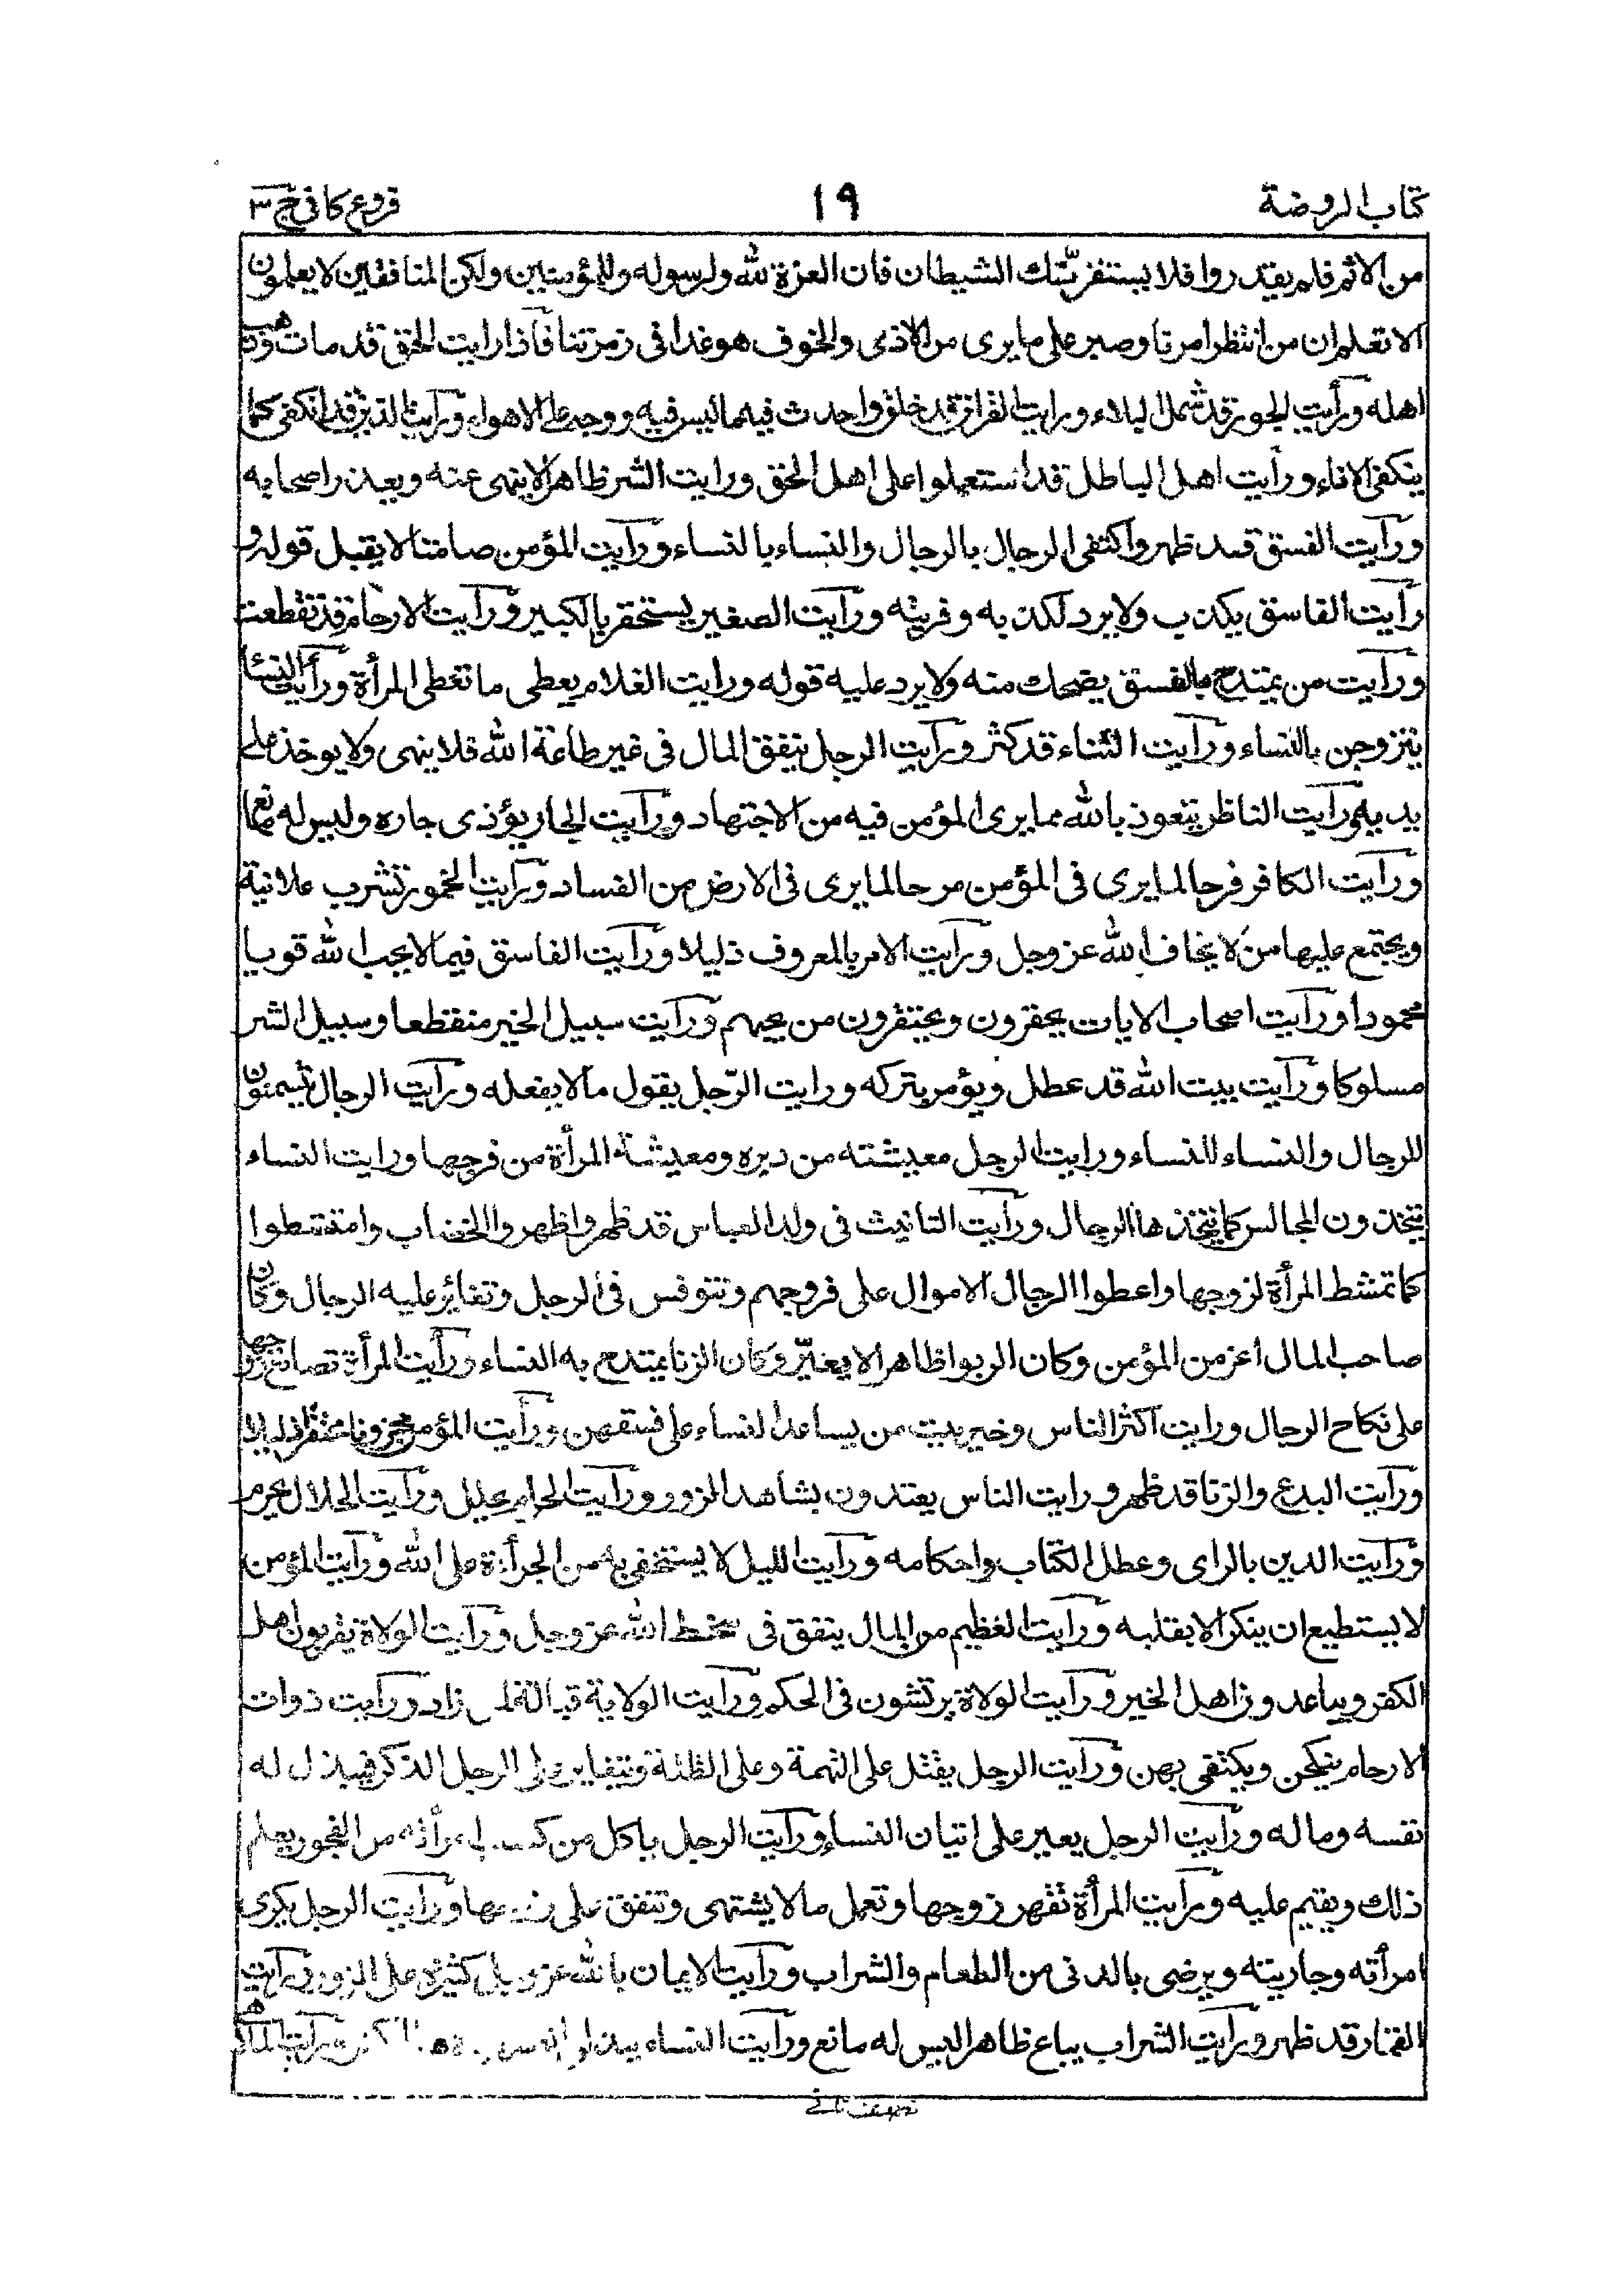 كتاب الروضة ١٩ فروع كافي ج ٣
من الاثم فلم يقدروا فلا يستفزنّك الشيطان فان العزة لله ولرسوله وللمؤمنين ولكن المنافقين لا يعلمون
الا تعلم ان من انتظر امرنا وصبر على ما يرى من الاذى والخوف هو غدا فى زمرتنا فاذا رايت الحق قد مات وذهب
اهله ورأيت الجور قد شمل البلاد ورايت القران قد خلق واحدث فيه ما ليس فيه ووجه على الاهواء ورأيت الدين قد انكفى كما
ينكفى الاناء ورأيت اهل الباطل قد استعملوا على اهل الحق ورايت الشر ظاهرا لا ينهى عنه ويعذر اصحابه
ورأيت الفسق قد ظهر واكتفى الرجال بالرجال والنساء بالنساء ورأيت المؤمن صامتا لا يقبل قوله و
رأيت الفاسق يكذب ولا يرد كذبه وفريته ورأيت الصغير يستحقر بالكبير ورأيت الارحام قد تقطعت
ورأيت من يمتدح بالفسق يضحك منه ولا يرد عليه قوله ورايت الغلام يعطى ما تعطى المرأة ورأيت النساء
يتزوجن بالنساء ورأيت الثناء قد كثر ورأيت الرجل ينفق المال فى غير طاعة الله فلا ينهى ولا يوخذ على
يديه ورأيت الناظر يتعوذ بالله مما يرى المؤمن فيه من الاجتهاد ورأيت الجار يؤذى جاره وليس له مانع
ورأيت الكافر فرحا لما يرى فى المؤمن مرحا لما يرى فى الارض من الفساد ورأيت الخمور تشرب علانية
ويجتمع عليها من لا يخاف الله عز وجل ورأيت الامر بالمعروف ذليلا ورأيت الفاسق فيما لا يحب الله قويا
محمودا ورأيت اصحاب الايات يحقرون ويحتقرون من يحبهم ورأيت سبيل الخير منقطعا وسبيل الشر
مسلوكا ورأيت بيت الله قد عطل ويؤمر بتركه ورايت الرّجل يقول ما لا يفعله ورأيت الرجال يتسمنون
للرجال والنساء للنساء ورايت الرجل معيشته من دبره ومعيشة المرأة من فرجها ورايت النساء
يتخذون المجالس كما يتخذها الرجال ورأيت التانيث فى ولد العباس قد ظهر واظهروا الخضاب وامتشطوا
كما تمتشط المرأة لزوجها واعطوا الرجال الاموال على فروجهم وتنوفس فى الرجل وتغاير عليه الرجال وكان
صاحب المال اعز من المؤمن وكان الربوا ظاهرا لا يغيّر وكان الزنا يمتدح به النساء ورأيت المرأة تصانع زوجها
على نكاح الرجال ورايت اكثر الناس وخير بيت من يساعد النساء على فسقهن ورأيت المؤمن محزونا محتقرا ذليلا
ورأيت البدع والزنا قد ظهر ورايت الناس يعتدون بشاهد الزور ورأيت الحرام يحلل ورأيت الحلال يحرم
ورأيت الدين بالراى وعطل الكتاب واحكامه ورأيت الليل لا يستخفى به من الجرأة على الله ورأيت المؤمن
لا يستطيع ان ينكر الا بقلبه ورأيت العظيم من المال ينفق فى سخط الله عز وجل ورأيت الولاة يقربون اهل
الكفر ويباعدون اهل الخير ورأيت الولاة يرتشون فى الحكم ورأيت الولاية قبالة لمن زاد ورأيت ذوات
الارحام ينكحن ويكتفى بهن ورأيت الرجل يقتل على التهمة وعلى الظنة ويتغاير على الرجل الذكر فيبذل له
نفسه وماله ورأيت الرجل يعير على اتيان النساء ورأيت الرجل ياكل من كسب امرأته من الفجور يعلم
ذلك ويقيم عليه ورأيت المرأة تقهر زوجها وتعمل ما لا يشتهى وتنفق على زوجها ورأيت الرجل يكرى
امرأته وجاريته ويرضى بالدنى من الطعام والشراب ورأيت الايمان بالله عز وجل كثيرة على الزور ورأيت
القمار قد ظهر ورأيت الشراب يباع ظاهرا ليس له مانع ورأيت النساء يبذلن انفسهن ورأيت الملاهى